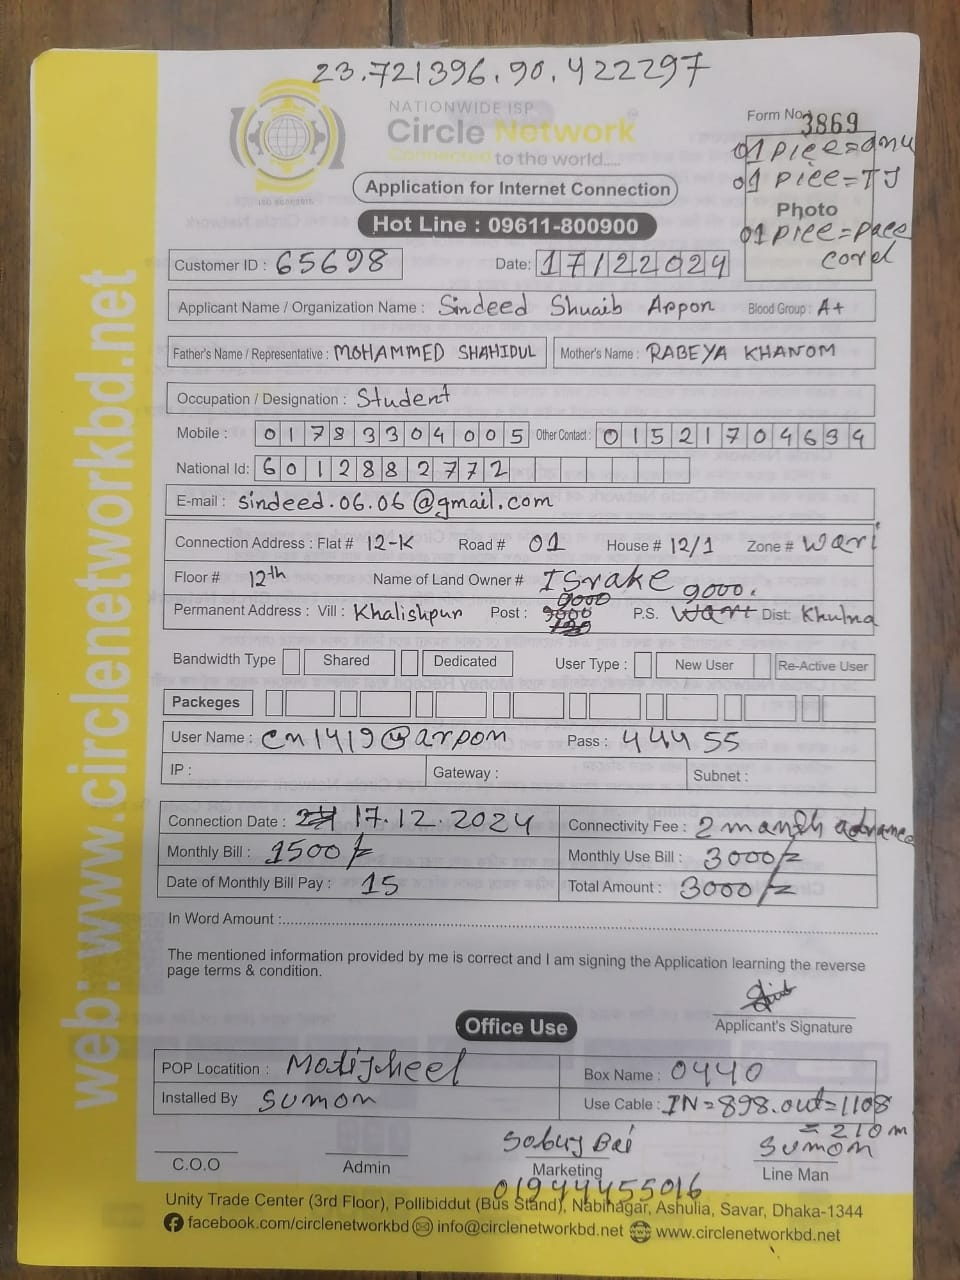 23.721396.90.422297
NATIONWIDE ISP
Circle Network
Connected to the world.....
ISO 9001:2015
Form No. 3869
01 piece=onu
01 piece=TJ
Photo
01 piece=pace
cord
Application for Internet Connection
Hot Line : 09611-800900
Customer ID : 65698
Date: 17/122024
Applicant Name / Organization Name : Sindeed Shuaib Arpon Blood Group : A+
Father's Name / Representative : MOHAMMED SHAHIDUL Mother's Name : RABEYA KHANOM
Occupation / Designation : Student
Mobile : 01783304005 Other Contact : 01521704694
National Id: 6012882772
E-mail : sindeed.06.06@gmail.com
Connection Address : Flat # 12-K Road # 01 House # 12/1 Zone # Wari
Floor # 12th Name of Land Owner # ISrake
Permanent Address : Vill : Khalishpur Post : 9000 P.S. 9000. Dist: Khulna
Bandwidth Type Shared Dedicated User Type : New User Re-Active User
Packeges
User Name : cn1419@arpon Pass : 444 55
IP : Gateway : Subnet :
Connection Date : 17.12.2024 Connectivity Fee : 2 month advance
Monthly Bill : 1500/= Monthly Use Bill : 3000/=
Date of Monthly Bill Pay : 15 Total Amount : 3000/=
In Word Amount :
The mentioned information provided by me is correct and I am signing the Application learning the reverse
page terms & condition.
Applicant's Signature
Office Use
POP Locatition : Motijheel Box Name : 0440
Installed By Sumon Use Cable : IN=898.out=1108
= 210 m
Sobuj Bai
Sumon
C.O.O Admin Marketing Line Man
01944455016
Unity Trade Center (3rd Floor), Pollibiddut (Bus Stand), Nabinagar, Ashulia, Savar, Dhaka-1344
facebook.com/circlenetworkbd info@circlenetworkbd.net www.circlenetworkbd.net
web: www.circlenetworkbd.net